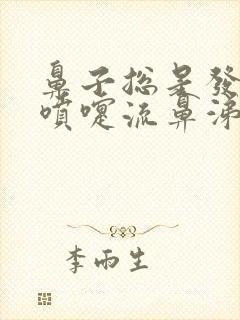 鼻子總是發
噴嚏流鼻涕
李雨生